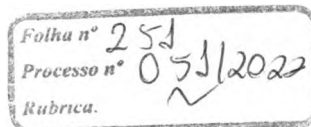 Folha nº 251
Processo nº 051/2022
Rubrica.